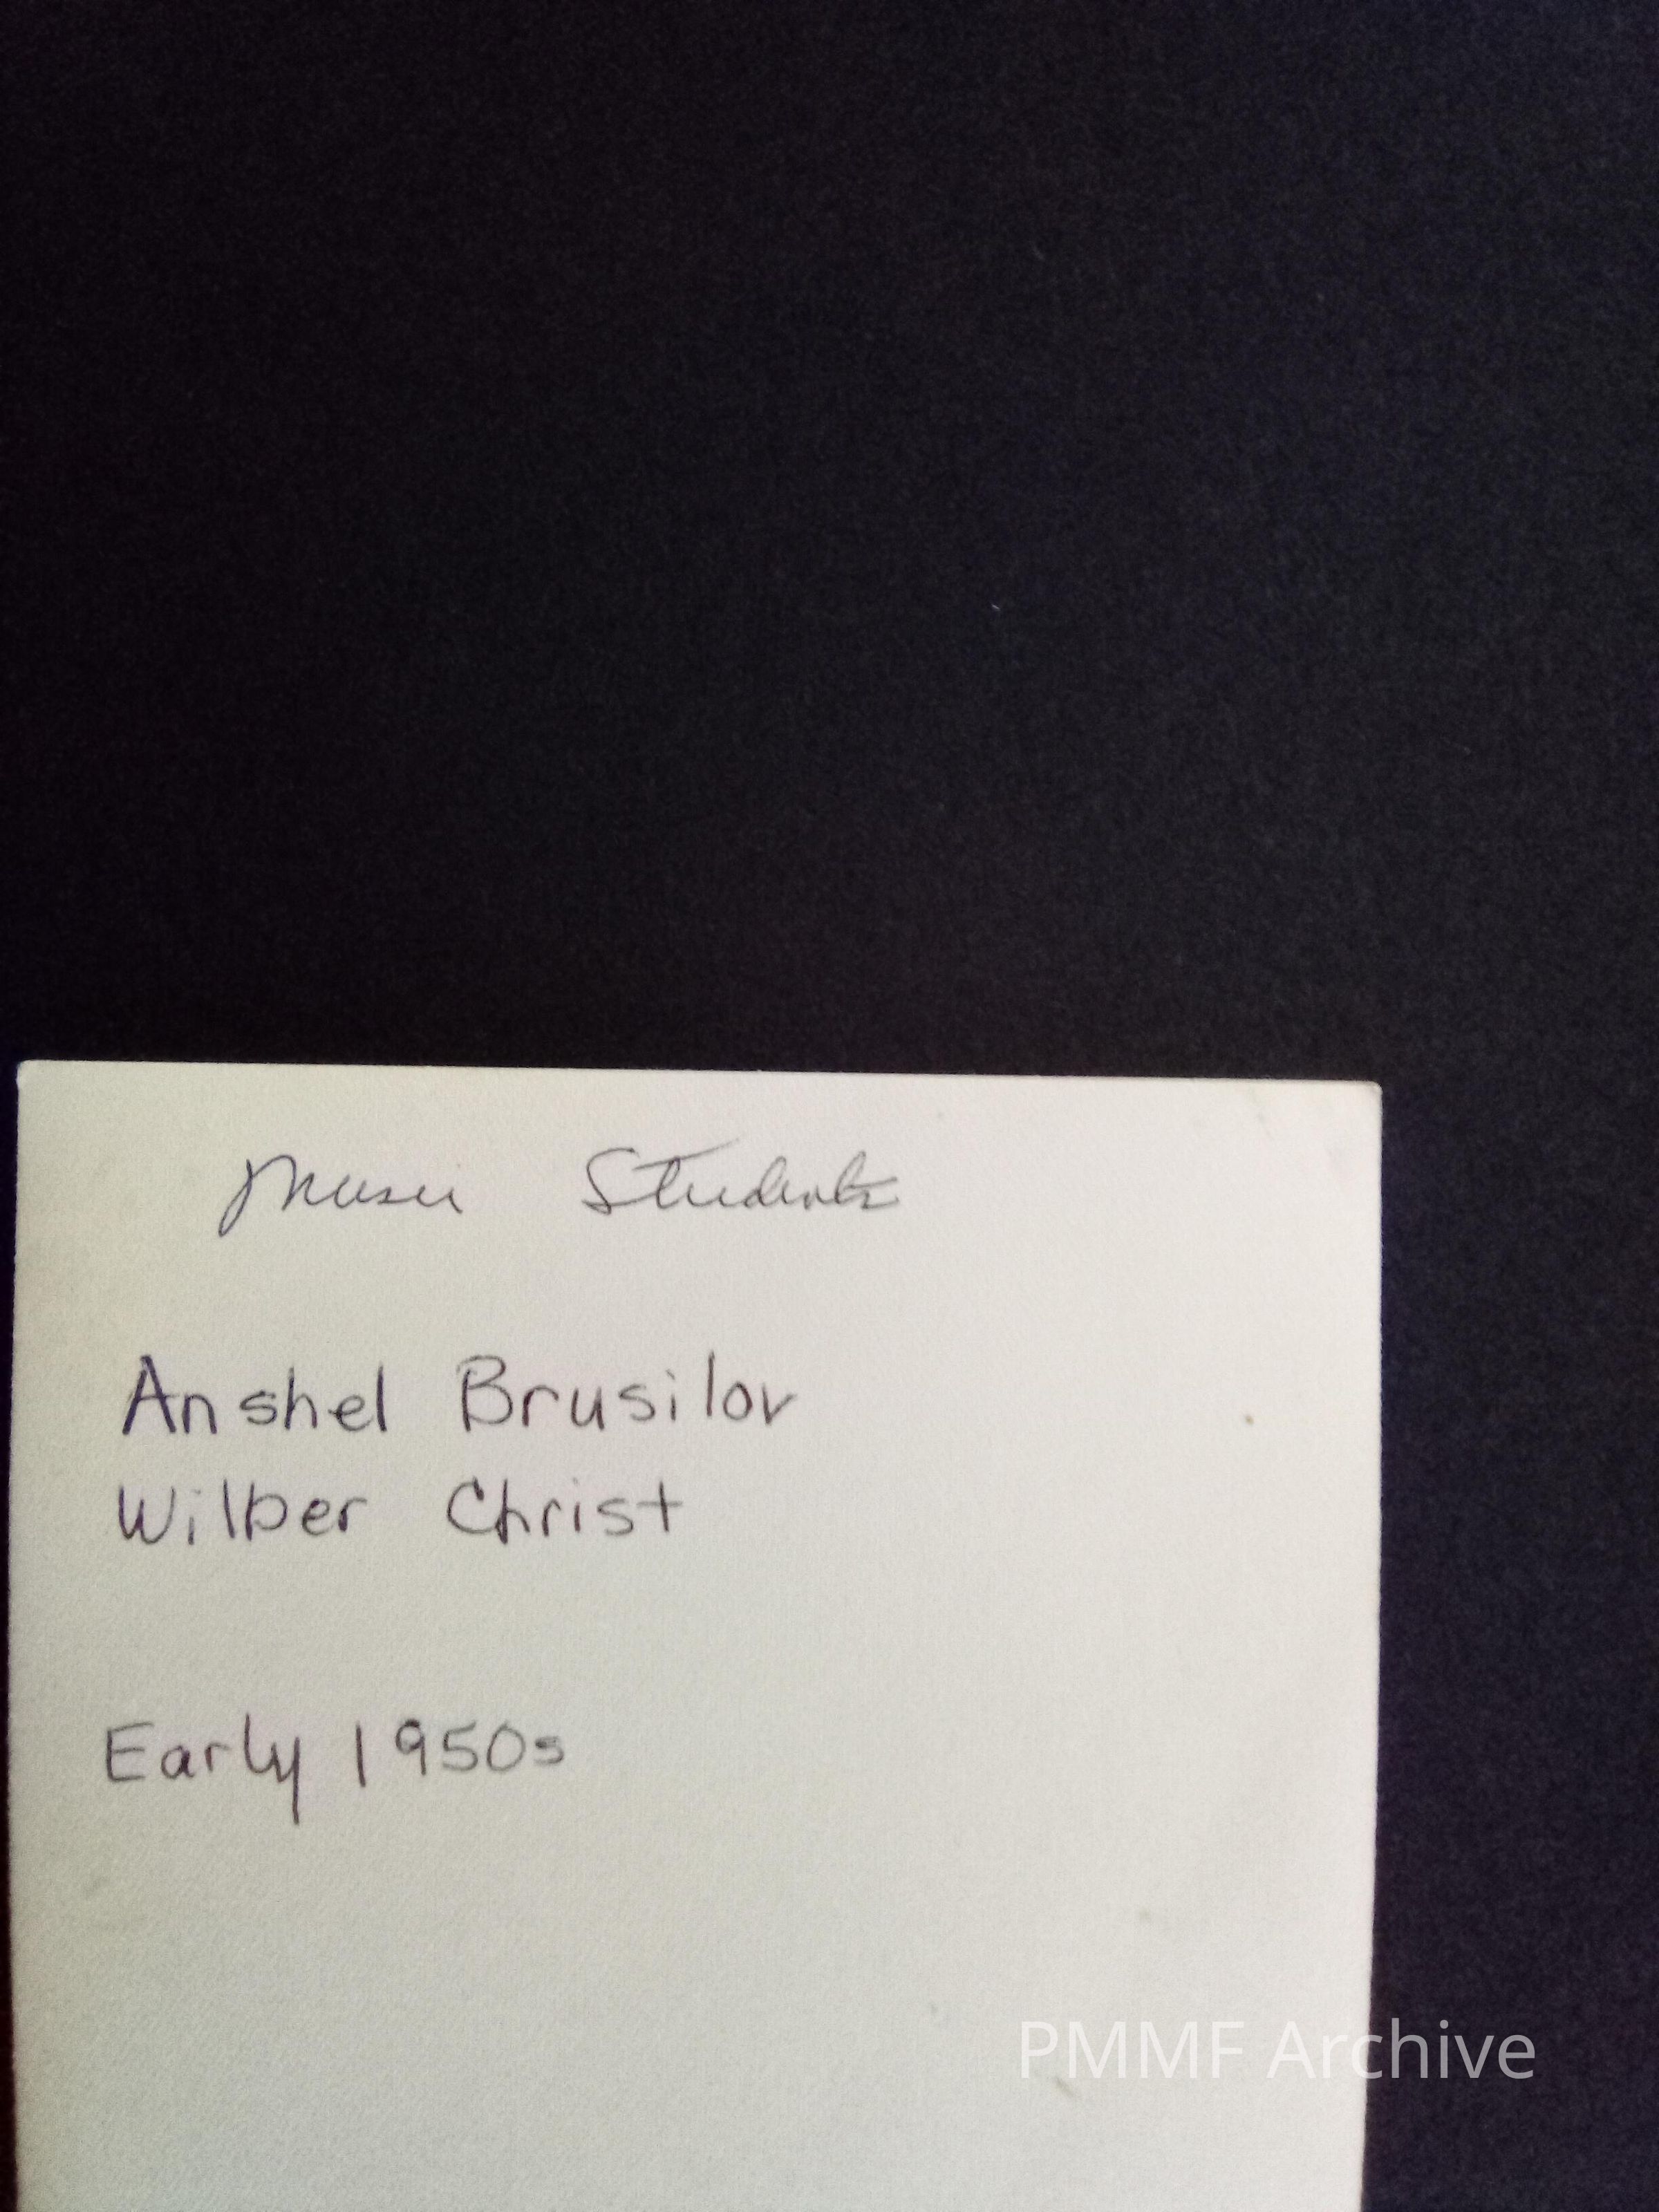 Music Students
Anshel Brusilov
Wilber Christ
Early 1950s
PMMF Archive